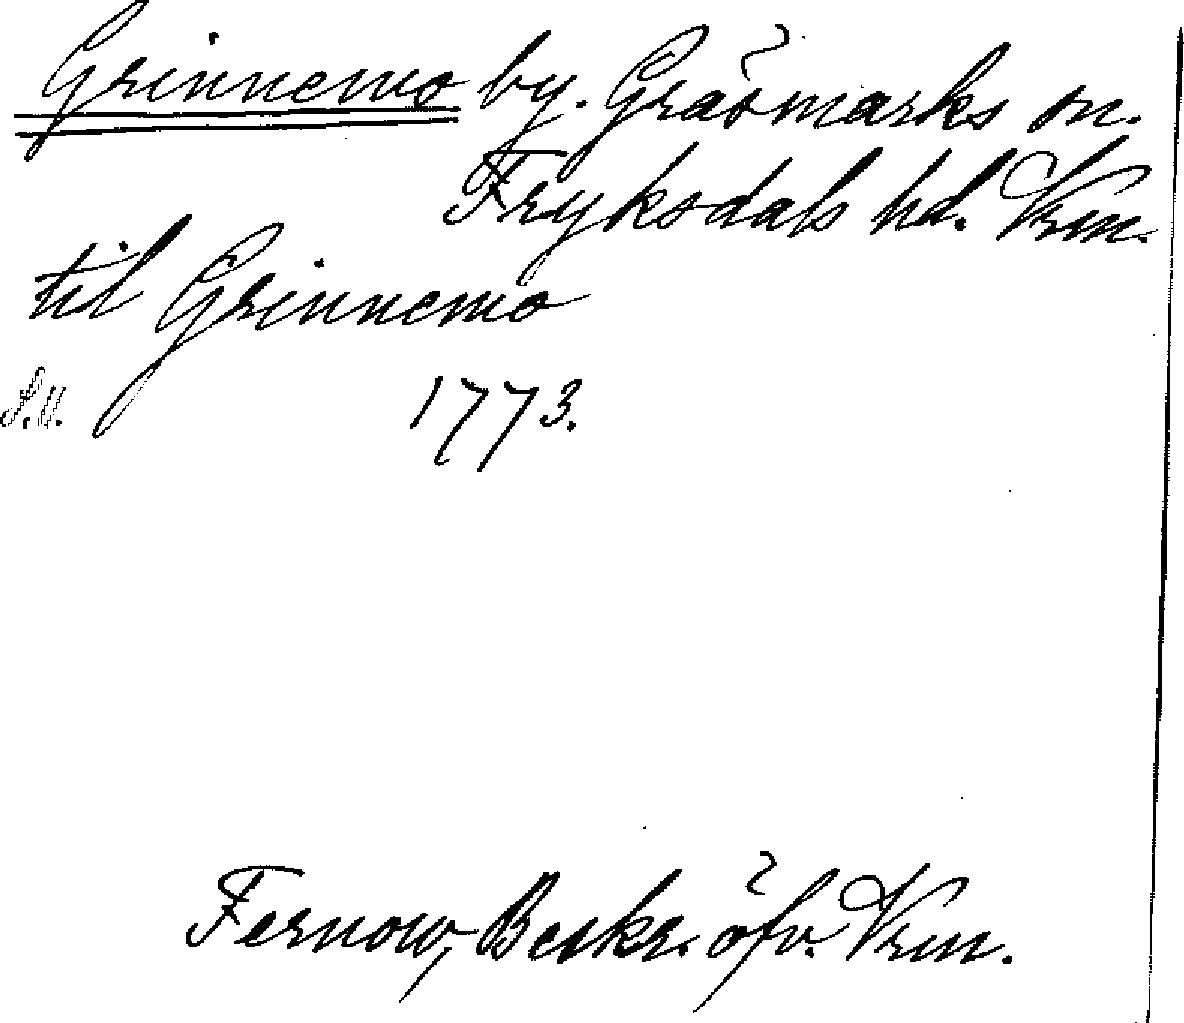 Grinnemo by. Gräsmarks sn.
Fryksdals hd. Vrm.
til Grinnemo
S.U. 1773.
Fernow, Beskr. öfv. Vrm.